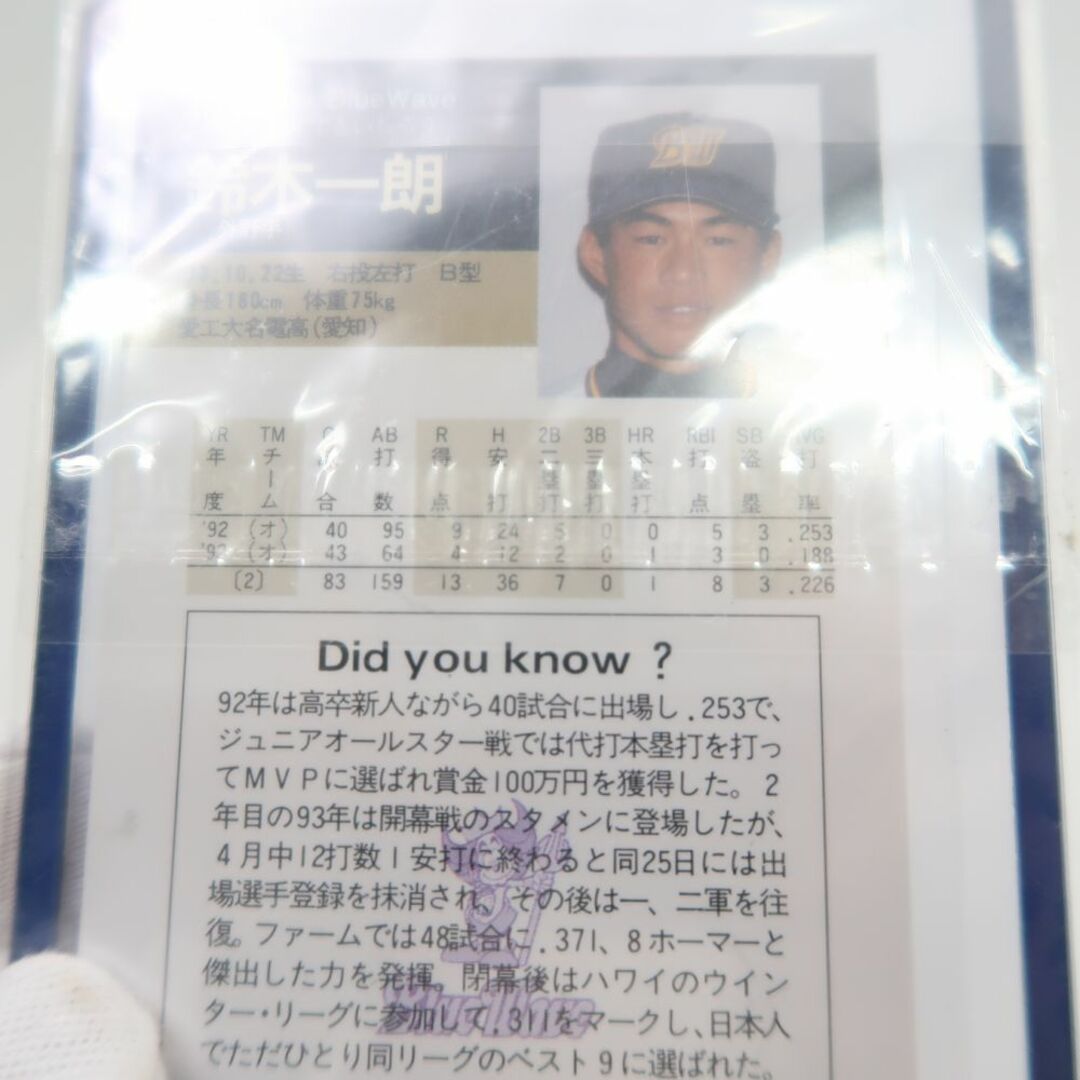 BlueWave
鈴木一朗
10.22生 右投左打 B型
身長180cm 体重75kg
愛工大名電高(愛知)
YR TM G AB R H 2B 3B HR RBI SB AVG
年度 チーム 試合 打数 得点 安打 二塁打 三塁打 本塁打 打点 盗塁 打率
'92 (オ) 40 95 9 24 5 0 0 5 3 .253
'93 (オ) 43 64 4 12 2 0 1 3 0 .188
〔2〕 83 159 13 36 7 0 1 8 3 .226
Did you know ?
92年は高卒新人ながら40試合に出場し.253で、
ジュニアオールスター戦では代打本塁打を打っ
てMVPに選ばれ賞金100万円を獲得した。2
年目の93年は開幕戦のスタメンに登場したが、
4月中12打数1安打に終わると同25日には出
場選手登録を抹消され、その後は一、二軍を往
復。ファームでは48試合に.371、8ホーマーと
傑出した力を発揮。閉幕後はハワイのウイン
ター・リーグに参加して.311をマークし、日本人
でただひとり同リーグのベスト9に選ばれた。
BlueWave